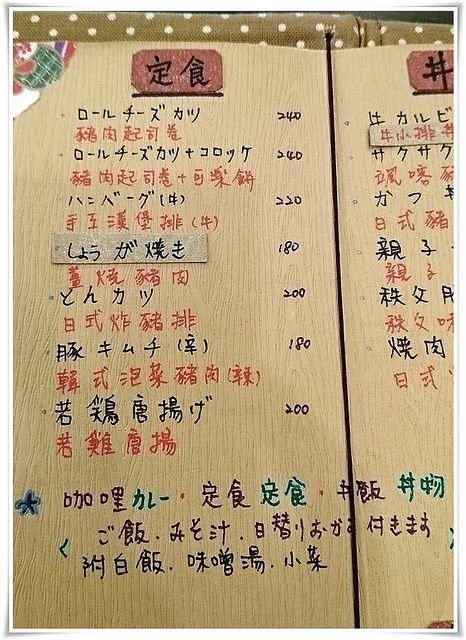 定食
ロールチーズカツ 240
豬肉起司卷
ロールチーズカツ+コロッケ 240
豬肉起司卷+可樂餅
ハンバーグ(牛) 220
手工漢堡排(牛)
しょうが焼き 180
薑燒豬肉
とんカツ 200
日式炸豬排
豚キムチ(辛) 180
韓式泡菜豬肉(辣)
若鶏唐揚げ 200
若雞唐揚
丼
牛カルビ
牛小排丼
サクサク
颯喀
かつ
日式豬
親子
親子
秩父
秩父味
焼肉
日式
*咖哩カレー・定食定食・丼飯丼物
ご飯.みそ汁.日替りおかず付きます
附白飯.味噌湯.小菜